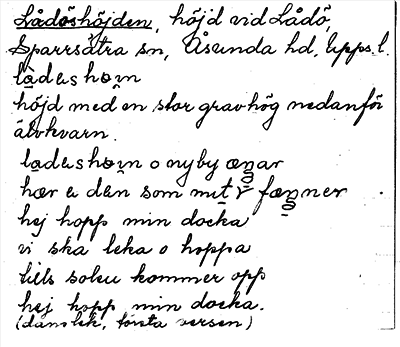 Lådöshöjden, höjd vid Lådö,
Sparrsätra sn, Åsunda hd, Upps. l.
lådeshœ̣in
höjd med en stor gravhög nedanför
älvkvarn.
lades hœin o nyby œgar
hœr e dan som mitr fœgner
hej hopp min docka
vi ska leka o hoppa
tills solen kommer opp
hej hopp min docka.
(danslek, första versen)